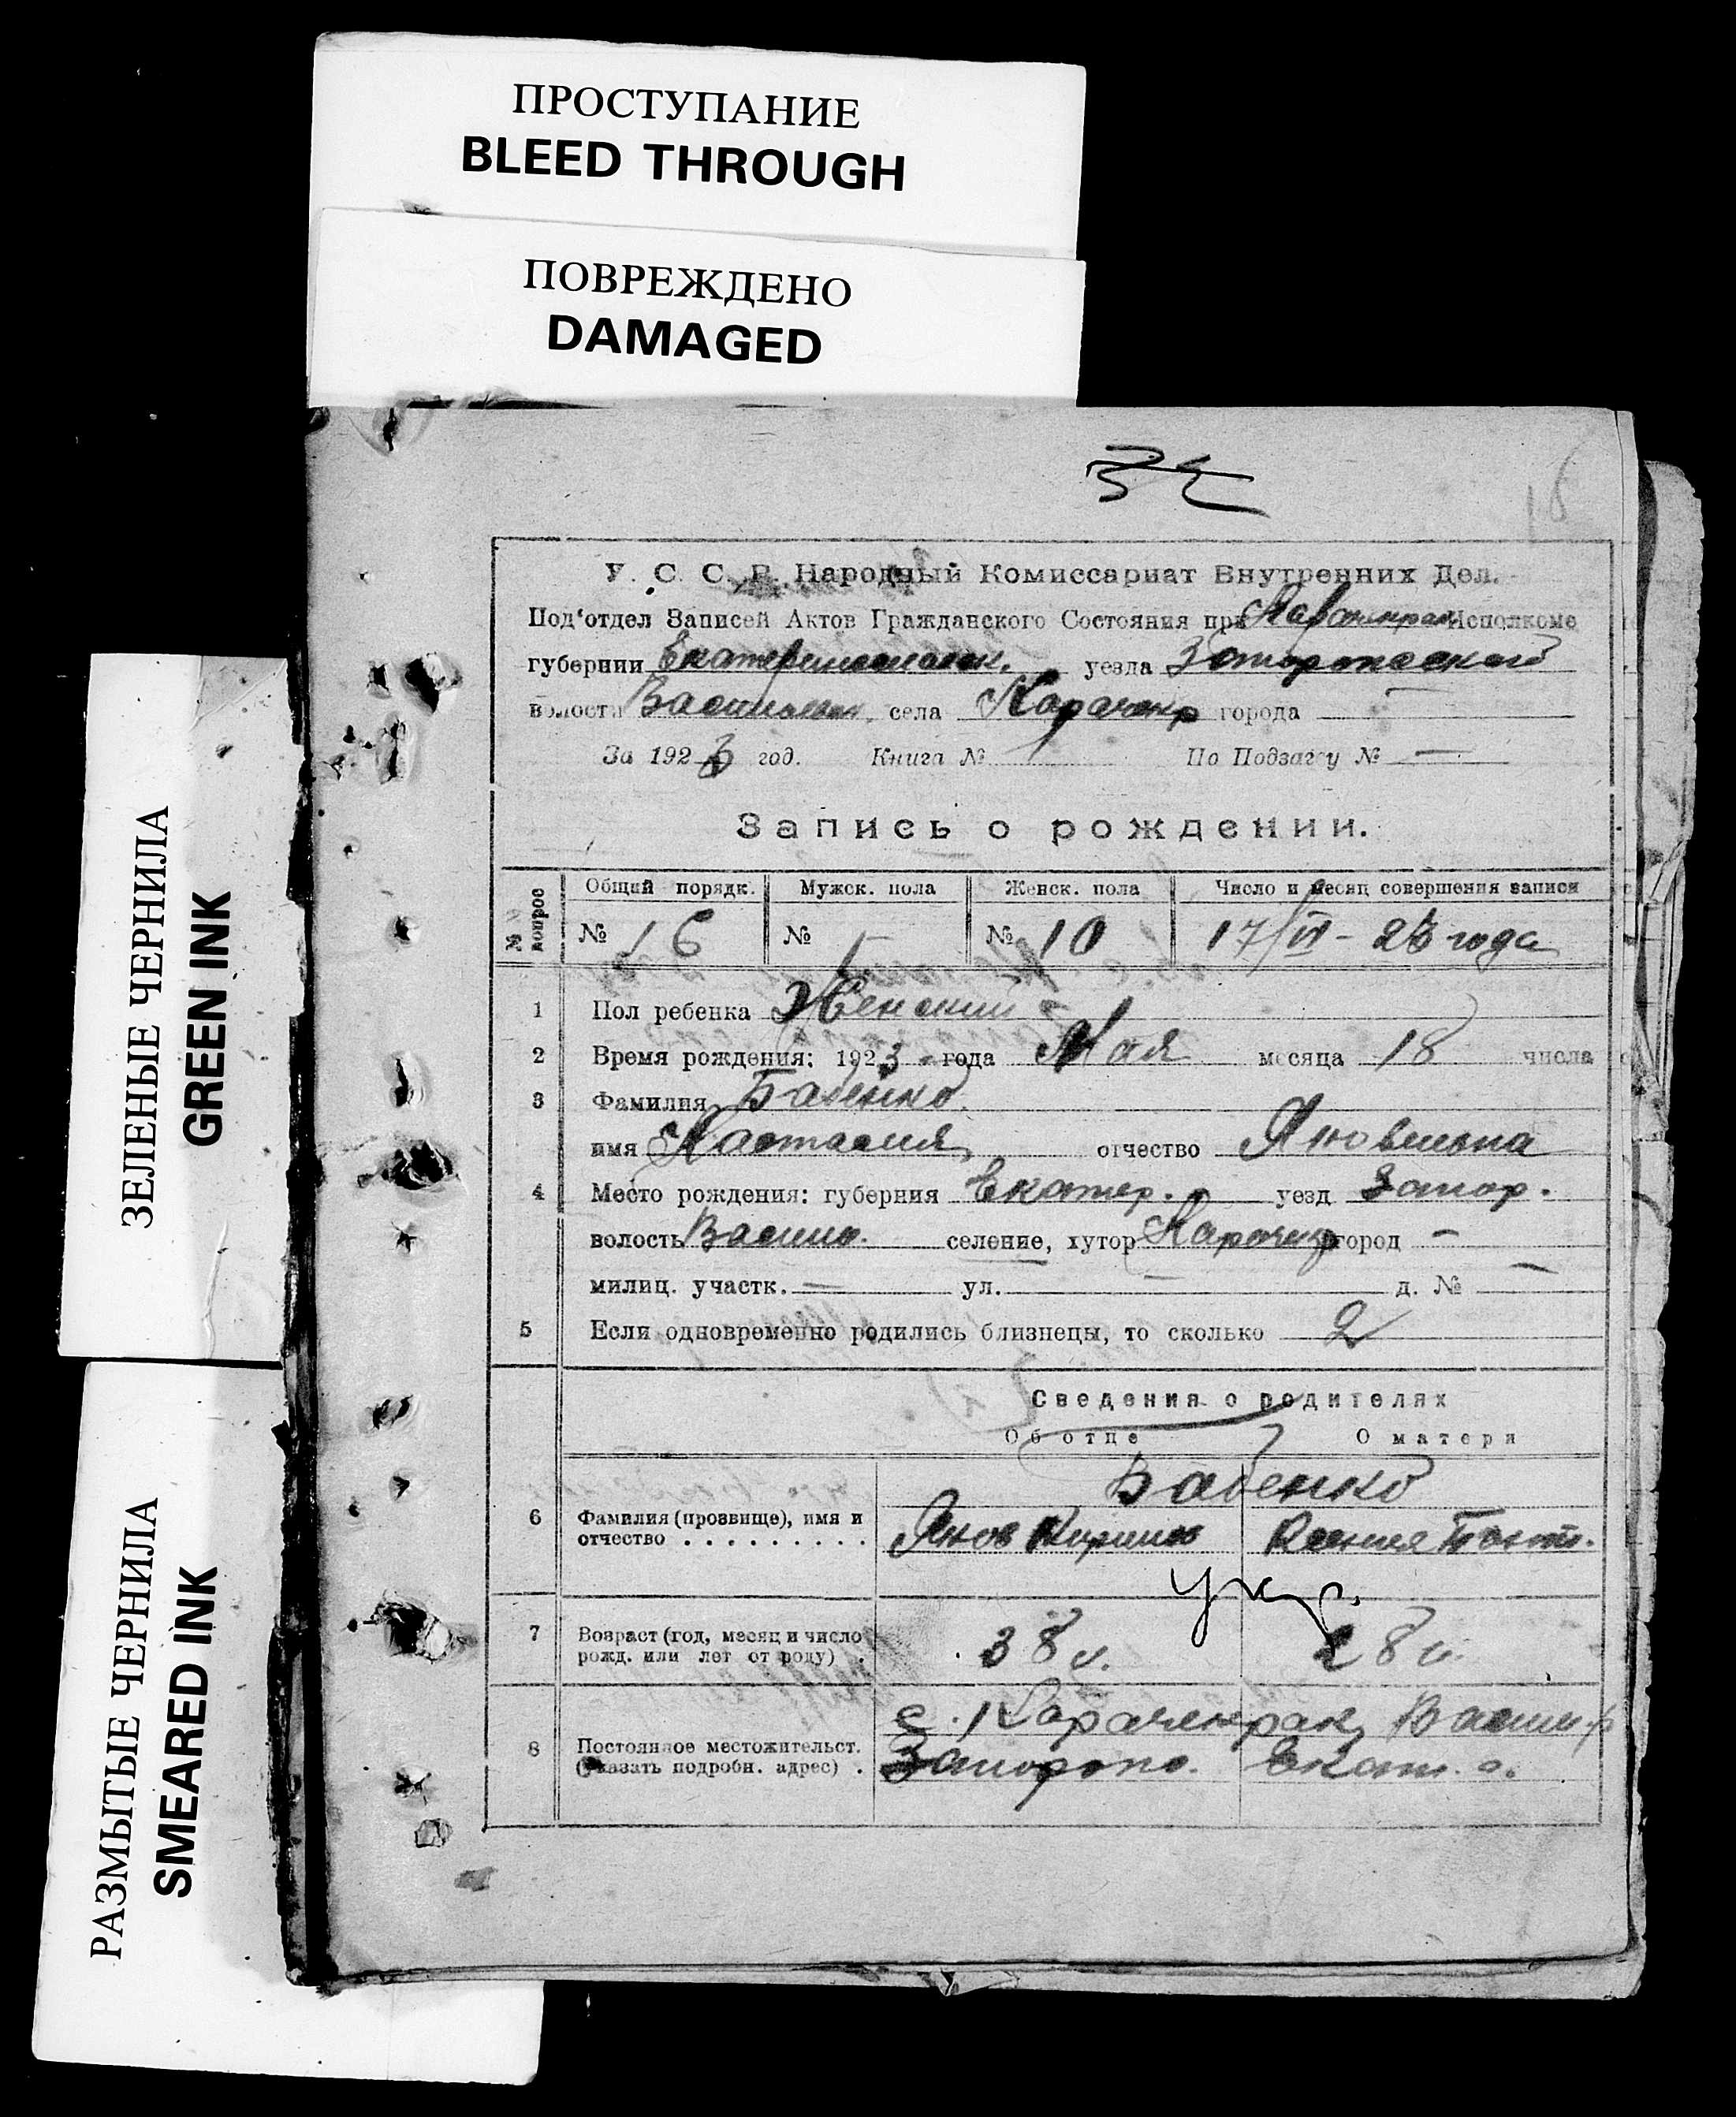 ПРОСТУПАНИЕ
BLEED THROUGH
ПОВРЕЖДЕНО
DAMAGED
ЗЕЛЕНЫЕ ЧЕРНИЛА
GREEN INK
РАЗМЫТЫЕ ЧЕРНИЛА
SMEARED INK
18
У. С. С. Р. Народный Комиссариат Внутренних Дел.
Под'отдел Записей Актов Гражданского Состояния при Исполкоме
губернии Екатеринославск. уезда Запорожской
волости Васильев. села Карачекр города —
За 1923 год. Книга № По Подзагсу № —
Запись о рождении.
№ вопрос Общий порядк. Мужск. пола Женск. пола Число и месяц совершения записи
№ 16 № — № 10 17/VI - 23 года
1 Пол ребенка Женский
2 Время рождения: 1923 года Мая месяца 18 числа
3 Фамилия Бабенко
имя Настасия отчество Яковлевна
4 Место рождения: губерния Екатер. уезд Запор.
волость Васил. селение, хутор Карачекр город —
милиц. участк. — ул. — д. № —
5 Если одновременно родились близнецы, то сколько 2
Сведения о родителях
Об отце О матери
Бабенко
6 Фамилия (прозвище), имя и отчество . . . . . . . . . Яков Кирилов Ксения
укр.
7 Возраст (год, месяц и число рожд. или лет от роду) . 38 л. 28 л.
8 Постоянное местожительст. (указать подробн. адрес) . с. Карачекрак, Васил. р
Запорож. Екат. г.